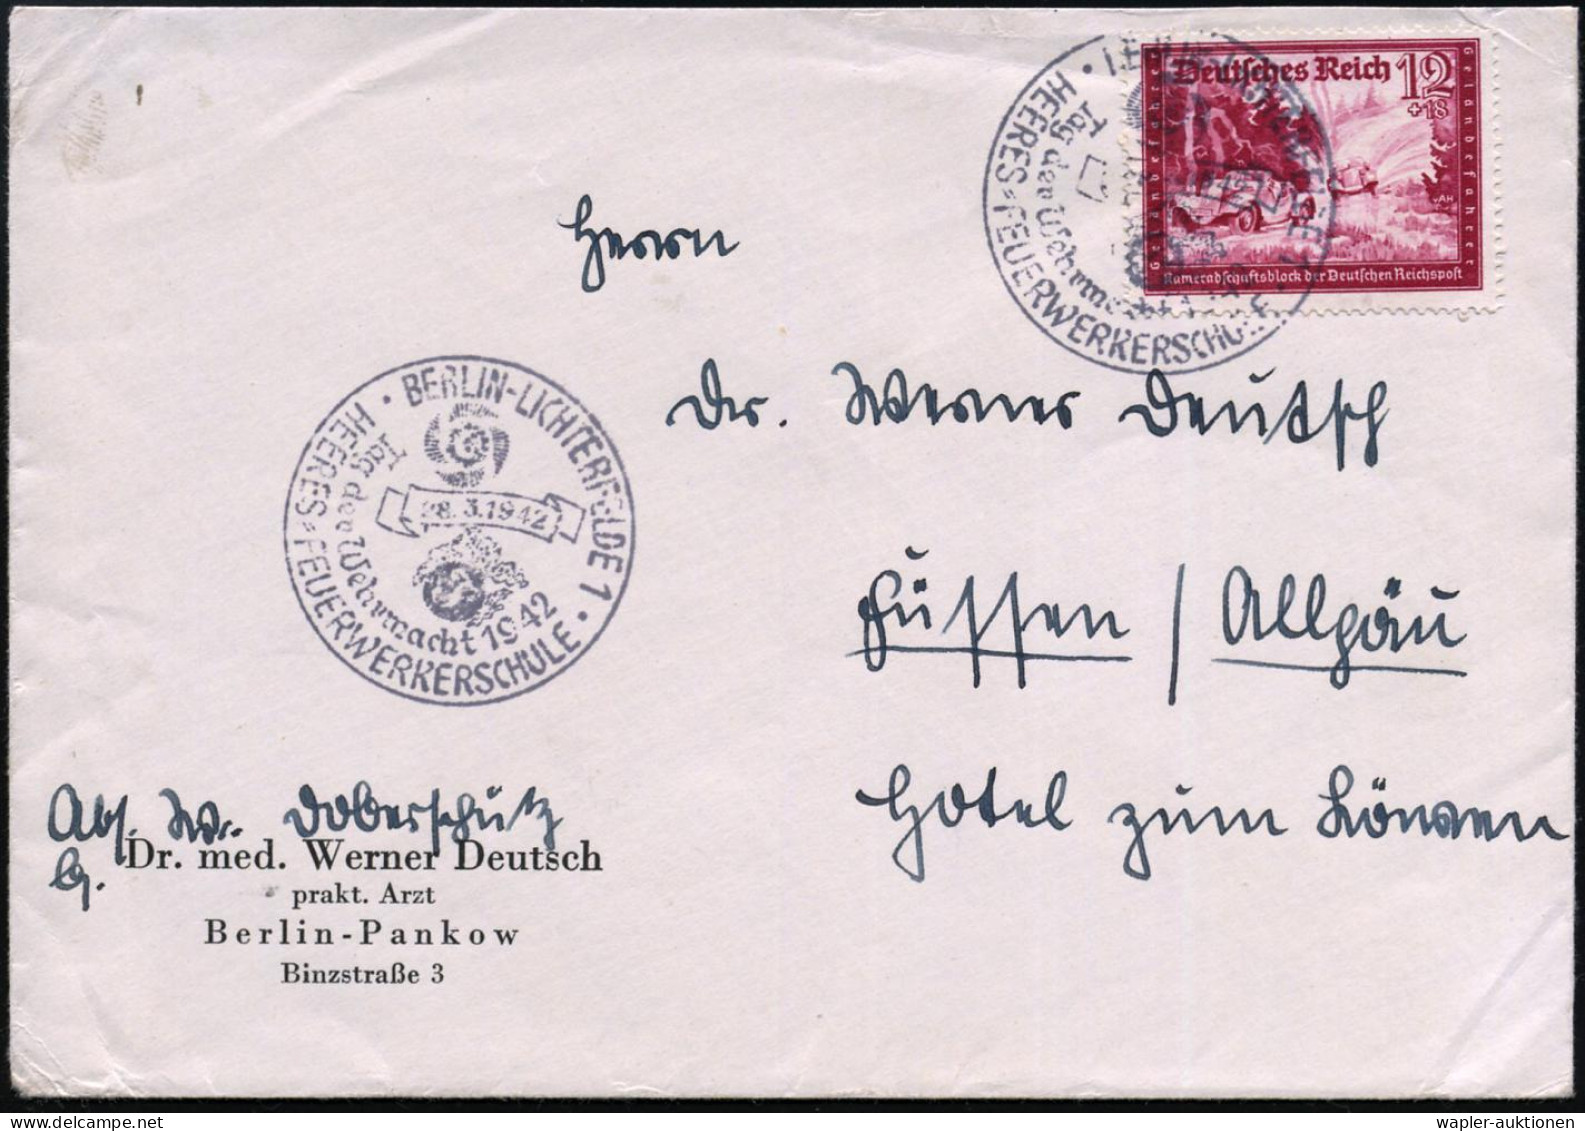 Deutsches Reich 12
+18
Geländefahrer
Geländefahrer
AH
Kameradschaftsblock der Deutschen Reichspost
HEERES-FEUERWERKERSCHULE
Tag der Wehrmacht
Herrn
Dr. Werner Deutsch
Füssen / Allgäu
Hotel zum Löwen
• BERLIN-LICHTERFELDE 1 •
HEERES-FEUERWERKERSCHULE
Tag der Wehrmacht 1942
28.3.1942
Abs. W. Doberschütz
Dr. med. Werner Deutsch
prakt. Arzt
Berlin-Pankow
Binzstraße 3
wapler-auktionen